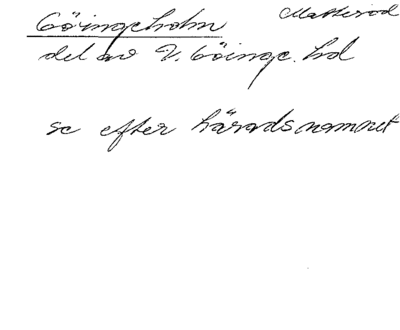 Göingeholm Matteröd
del av V. Göinge hd
se efter häradsnamnet